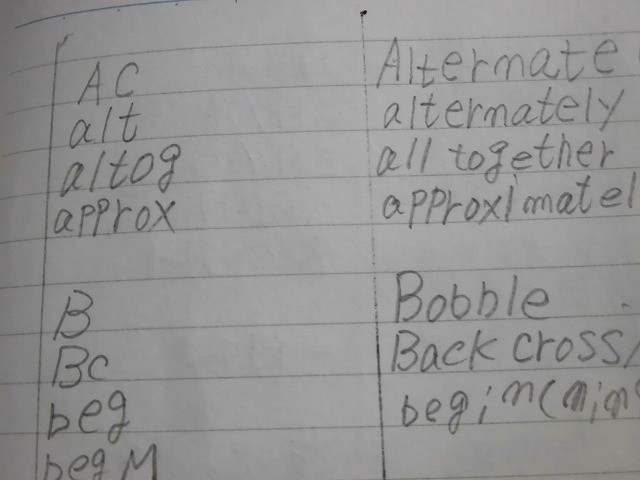 AC Alternate
alt alternately
altog all together
approx approximatel
B Bobble
Bc Back cross/
beg begin(nin
beg M